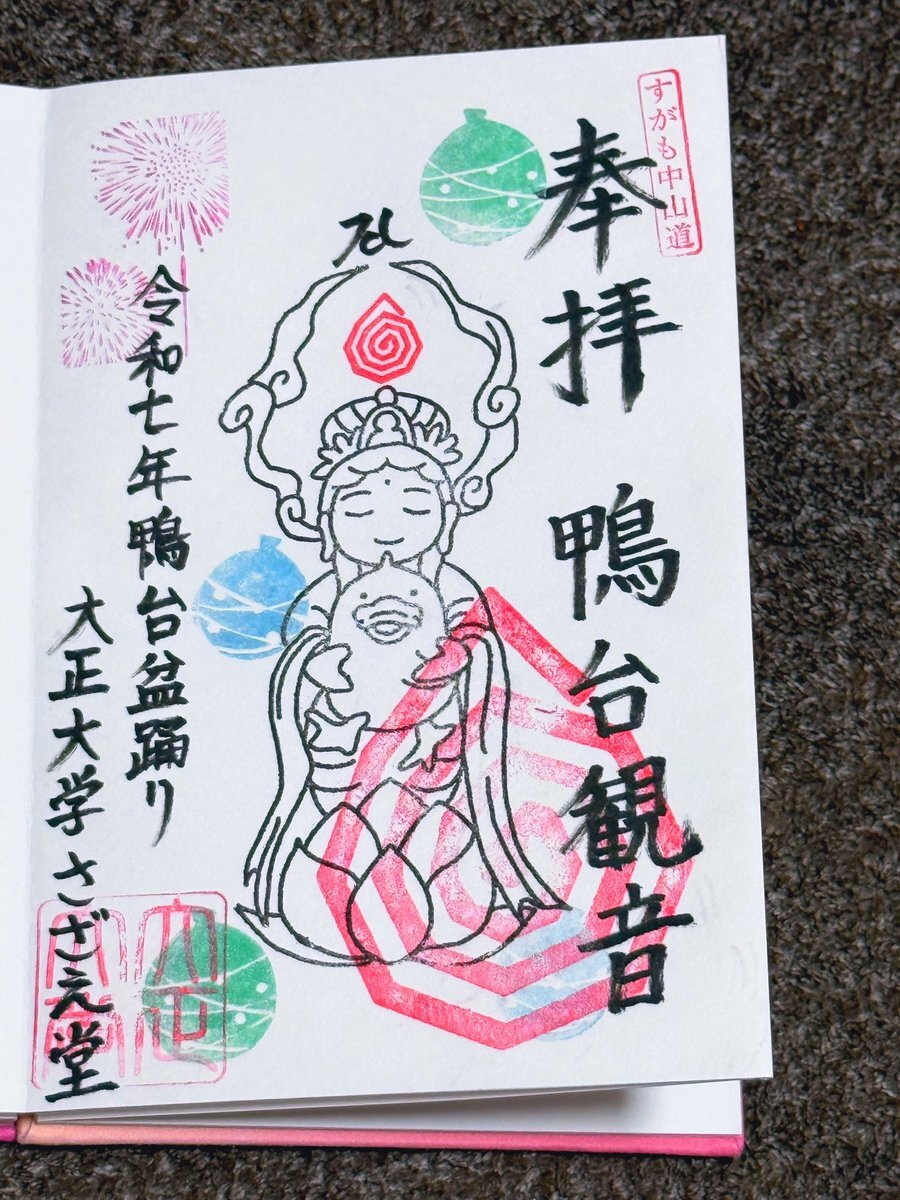 すがも中山道
奉拝 鴨台観音
令和七年鴨台盆踊り
大正大学さざえ堂